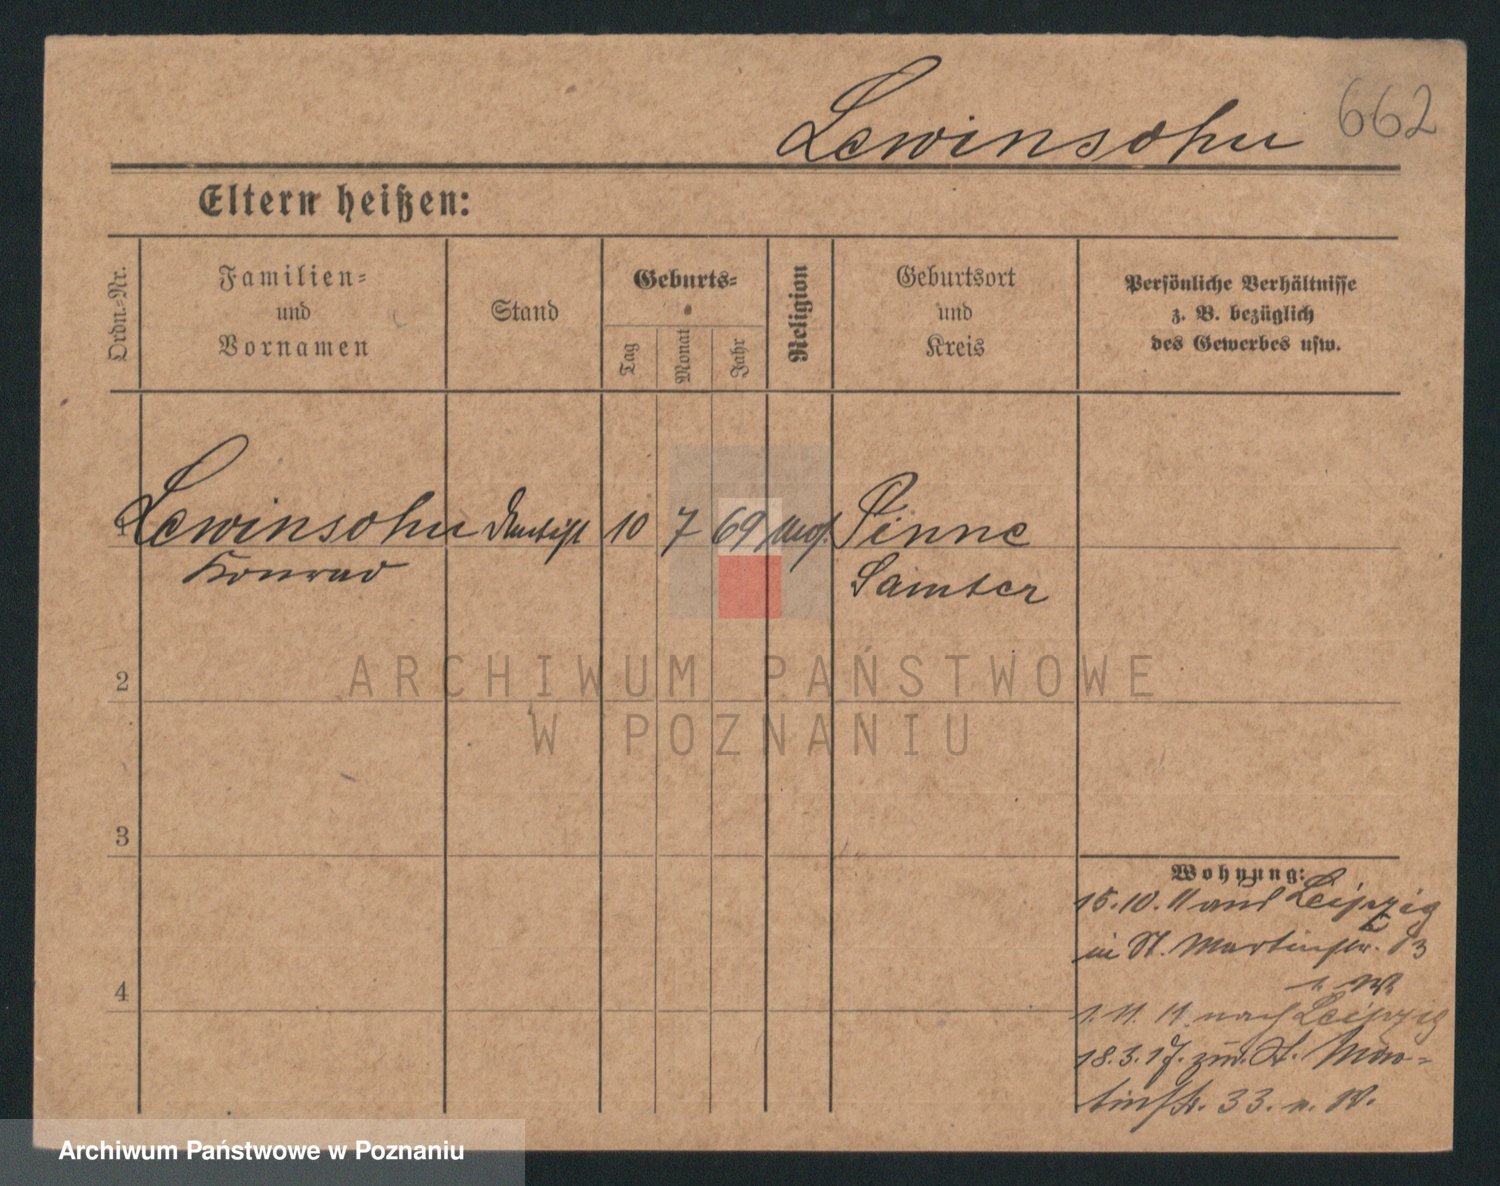 Lewinsohn 662
Eltern heißen:
Ordn.-Nr.
Familien-
und
Vornamen
Stand
Geburts-
Tag
Monat
Jahr
Religion
Geburtsort
und
Kreis
Persönliche Verhältnisse
z. B. bezüglich
des Gewerbes usw.
1 Lewinsohn Dentist 10 7 69 mos. Pinne
Konrad Samter
2
ARCHIWUM PAŃSTWOWE
W POZNANIU
3
Wohnung:
15.10.11 aus Leipzig
in St. Martinstr.
4
1.11.11 nach Leipzig
18.3.17. zur. St. Mar-
tinstr. 33.
Archiwum Państwowe w Poznaniu